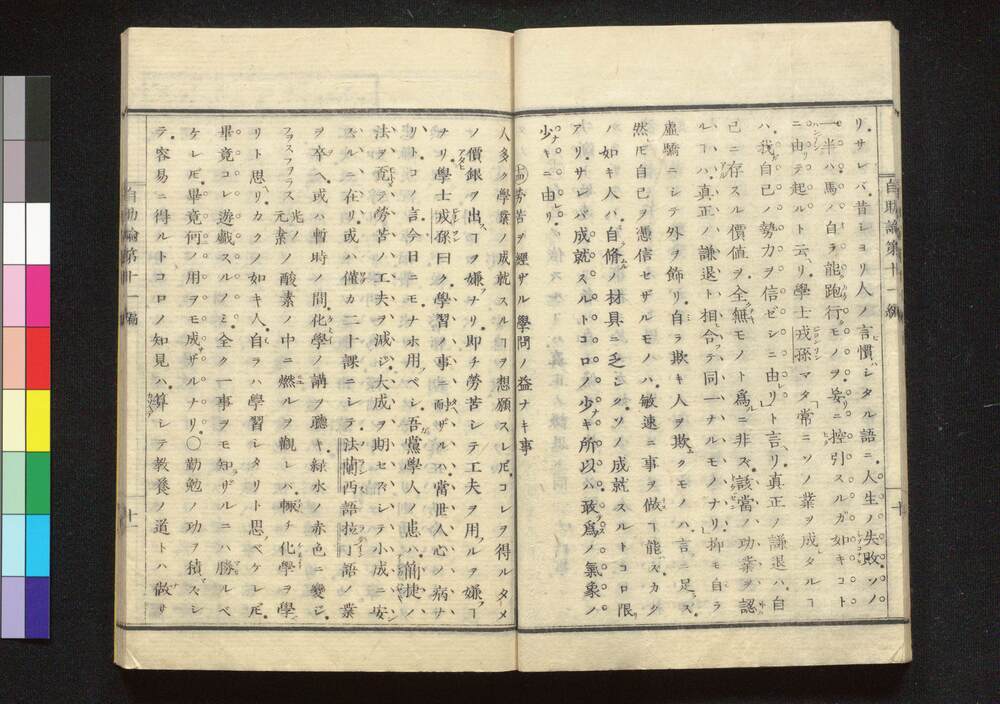 自助論第十一編
十
リ。サレバ昔シヨリ人ノ言慣シタル語ニ、人生ノ失敗。ソノ
一半ハ。馬ノ自ラ能跑行モノヲ。妄ニ控引スルガ如キコト
ニ由リテ起ルト云ヘリ學士戎孫マタ常ニソノ業ヲ成タルヿ
ハ。我自己ノ勢力ヲ信ゼシニ由リト言リ眞正ノ謙退ハ。自
己ニ存スル價値ヲ。全ク無モノト爲ニ非ズ。該當ノ功業ヲ認
ルヿハ。眞正ノ謙退ト相合テ。同一ナルモノナリ。抑モ自ラ
虛驕ニシテ外ヲ飾リ。自ラ欺キ人ヲ欺クモノハ。言ニ足ズ。
然𪜈自己ヲ憑信セザルモノハ。敏速ニ事ヲ做ヿ能ズ。カク
ノ如キ人ハ。自修ノ材具ニ乏シク。ソノ成就スルトコロ限
アリ。サレバ成就スルトコロノ少キ所以ハ。敢爲ノ氣象ノ
少キニ由リ。
勞苦ヲ經ザル學問ノ益ナキ事
人多ク學業ノ成就スルヿヲ想願スレ𪜈。コレヲ得ルタメ
ノ價銀ヲ出スヿヲ嫌ナリ。即チ勞苦シテ工夫ヲ用ルヲ嫌ヿ
ナリ。學士戎孫曰ク。學習ノ事ニ耐ザルハ。當世人心ノ病ナ
リト。コノ言今日ニモナホ用ベシ。吾黨學人ノ患ハ。簡捷ノ
法ヲ覓テ。勞苦ノ工夫ヲ減ジ。大成ヲ期セズシテ小成ニ安
ズルニ在リ。或ハ僅カ二十課ニシテ法蘭西語拉丁語ノ業
ヲ卒ヘ。或ハ暫時ノ間。化學ノ講ヲ聽キ。緑水ノ赤色ニ變ジ。
光ノ元素ノ酸素ノ中ニ燃ルヲ觀レハ。輙チ化學ヲ學
リト思リ。カクノ如キ人。自ラハ學習シタリト思ベケレ𪜈。
畢竟コレ遊戯スルノミ。全ク一事ヲモ知ザルニハ勝ルベ
ケレ𪜈。畢竟何ノ用ヲモ成ザルナリ。〇勤勉ノ功ヲ積ズシ
テ。容易ニ得ルトコロノ知見ハ。算シテ敎養ノ道トハ做サ
自助論第十一編
十一